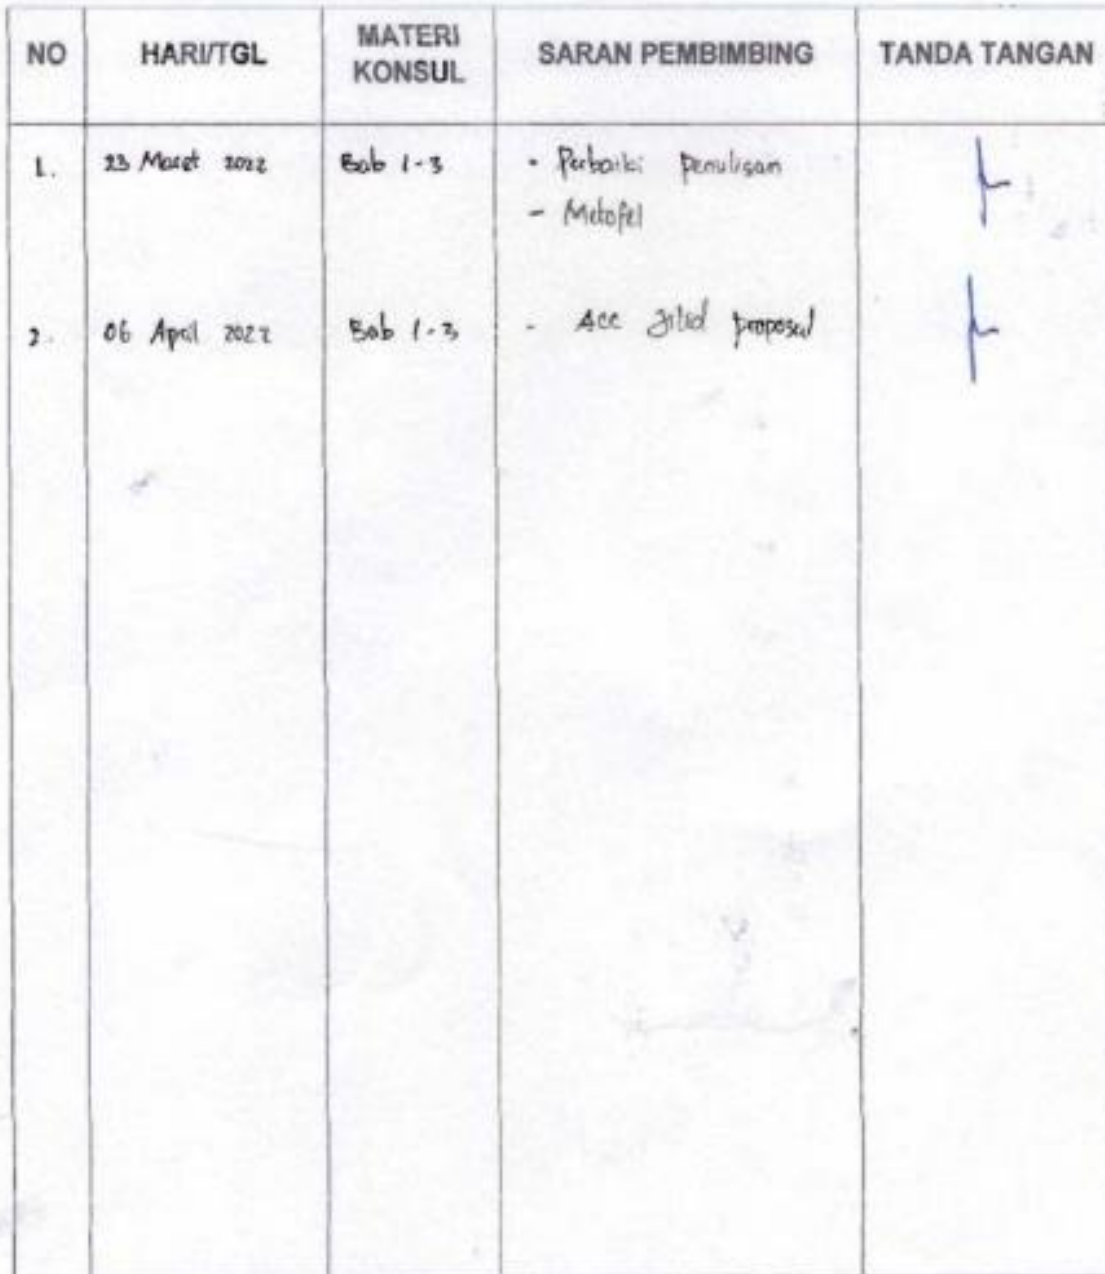 NO HARI/TGL MATERI KONSUL SARAN PEMBIMBING TANDA TANGAN
1. 23 Maret 2022 Bab 1-3 - Perbaiki penulisan
- Metopel
2. 06 April 2022 Bab 1-3 - Acc Jilid proposal